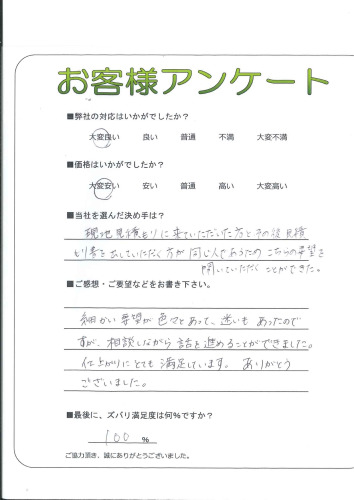 お客様アンケート
■弊社の対応はいかがでしたか?
大変良い 良い 普通 不満 大変不満
■価格はいかがでしたか?
大変安い 安い 普通 高い 大変高い
■当社を選んだ決め手は?
現地見積もりに来ていただいた方とその後見積
もり書を出していただく方が同じ人であうため こちらの希望を
聞いていただくことができた。
■ご感想・ご要望などをお書き下さい。
細かい要望が色々とあって、迷いもあったので
すが、相談しながら話を進めることができました。
仕上がりにとても満足しています。ありがとう
ございました。
■最後に、ズバリ満足度は何%ですか?
100 %
ご協力頂き、誠にありがとうございました。